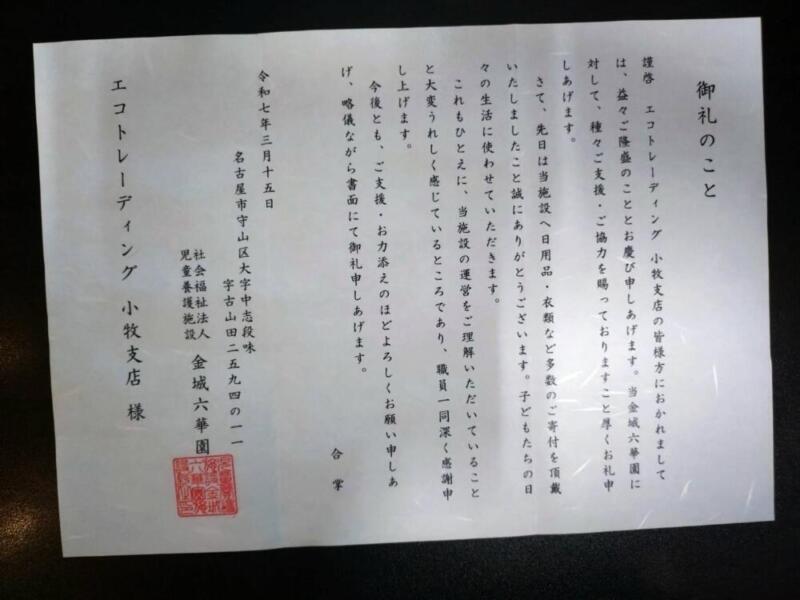 御礼のこと
謹啓　エコトレーディング　小牧支店の皆様方におかれまして
は、益々ご隆盛のこととお慶び申しあげます。当金城六華園に
対して、種々ご支援・ご協力を賜っておりますこと厚くお礼申
しあげます。
さて、先日は当施設へ日用品・衣類など多数のご寄付を頂戴
いたしましたこと誠にありがとうございます。子どもたちの日
々の生活に使わせていただきます。
これもひとえに、当施設の運営をご理解いただいていること
と大変うれしく感じているところであり、職員一同深く感謝申
し上げます。
今後とも、ご支援・お力添えのほどよろしくお願い申しあ
げ、略儀ながら書面にて御礼申しあげます。
合掌
令和七年三月十五日
名古屋市守山区大字中志段味
字古山田二五九四の一一
社会福祉法人
児童養護施設
金城六華園
エコトレーディング　小牧支店　様